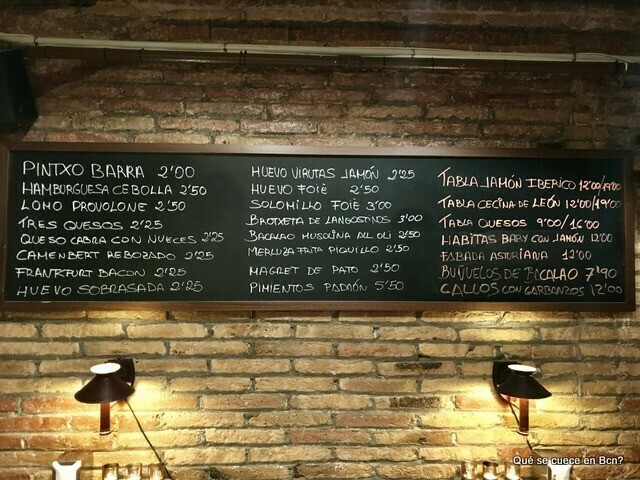 PINTXO BARRA 2'00
HAMBURGUESA CEBOLLA 2'50
LOMO PROVOLONE 2'50
TRES QUESOS 2'25
QUESO CABRA CON NUECES 2'25
CAMENBERT REBOZADO 2'25
FRANKFURT BACON 2'25
HUEVO SOBRASADA 2'25
HUEVO VIRUTAS JAMÓN 2'25
HUEVO FOIÈ 2'50
SOLOMILLO FOIÈ 3'00
BROTXETA DE LANGOSTINOS 3'00
BACALAO MUSOLINA ALL OLI 2'50
MERLUZA FRITA PIQUILLO 2'50
MAGRET DE PATO 2'50
PIMIENTOS PADRÓN 5'50
TABLA JAMÓN IBERICO 12'00/19'00
TABLA CECINA DE LEÓN 12'00/19'00
TABLA QUESOS 9'00/16'00
HABITAS BABY CON JAMÓN 12'00
FABADA ASTURIANA 12'00
BUÑUELOS DE BACALAO 7'90
CALLOS CON GARBANZOS 12'00
Qué se cuece en Bcn?